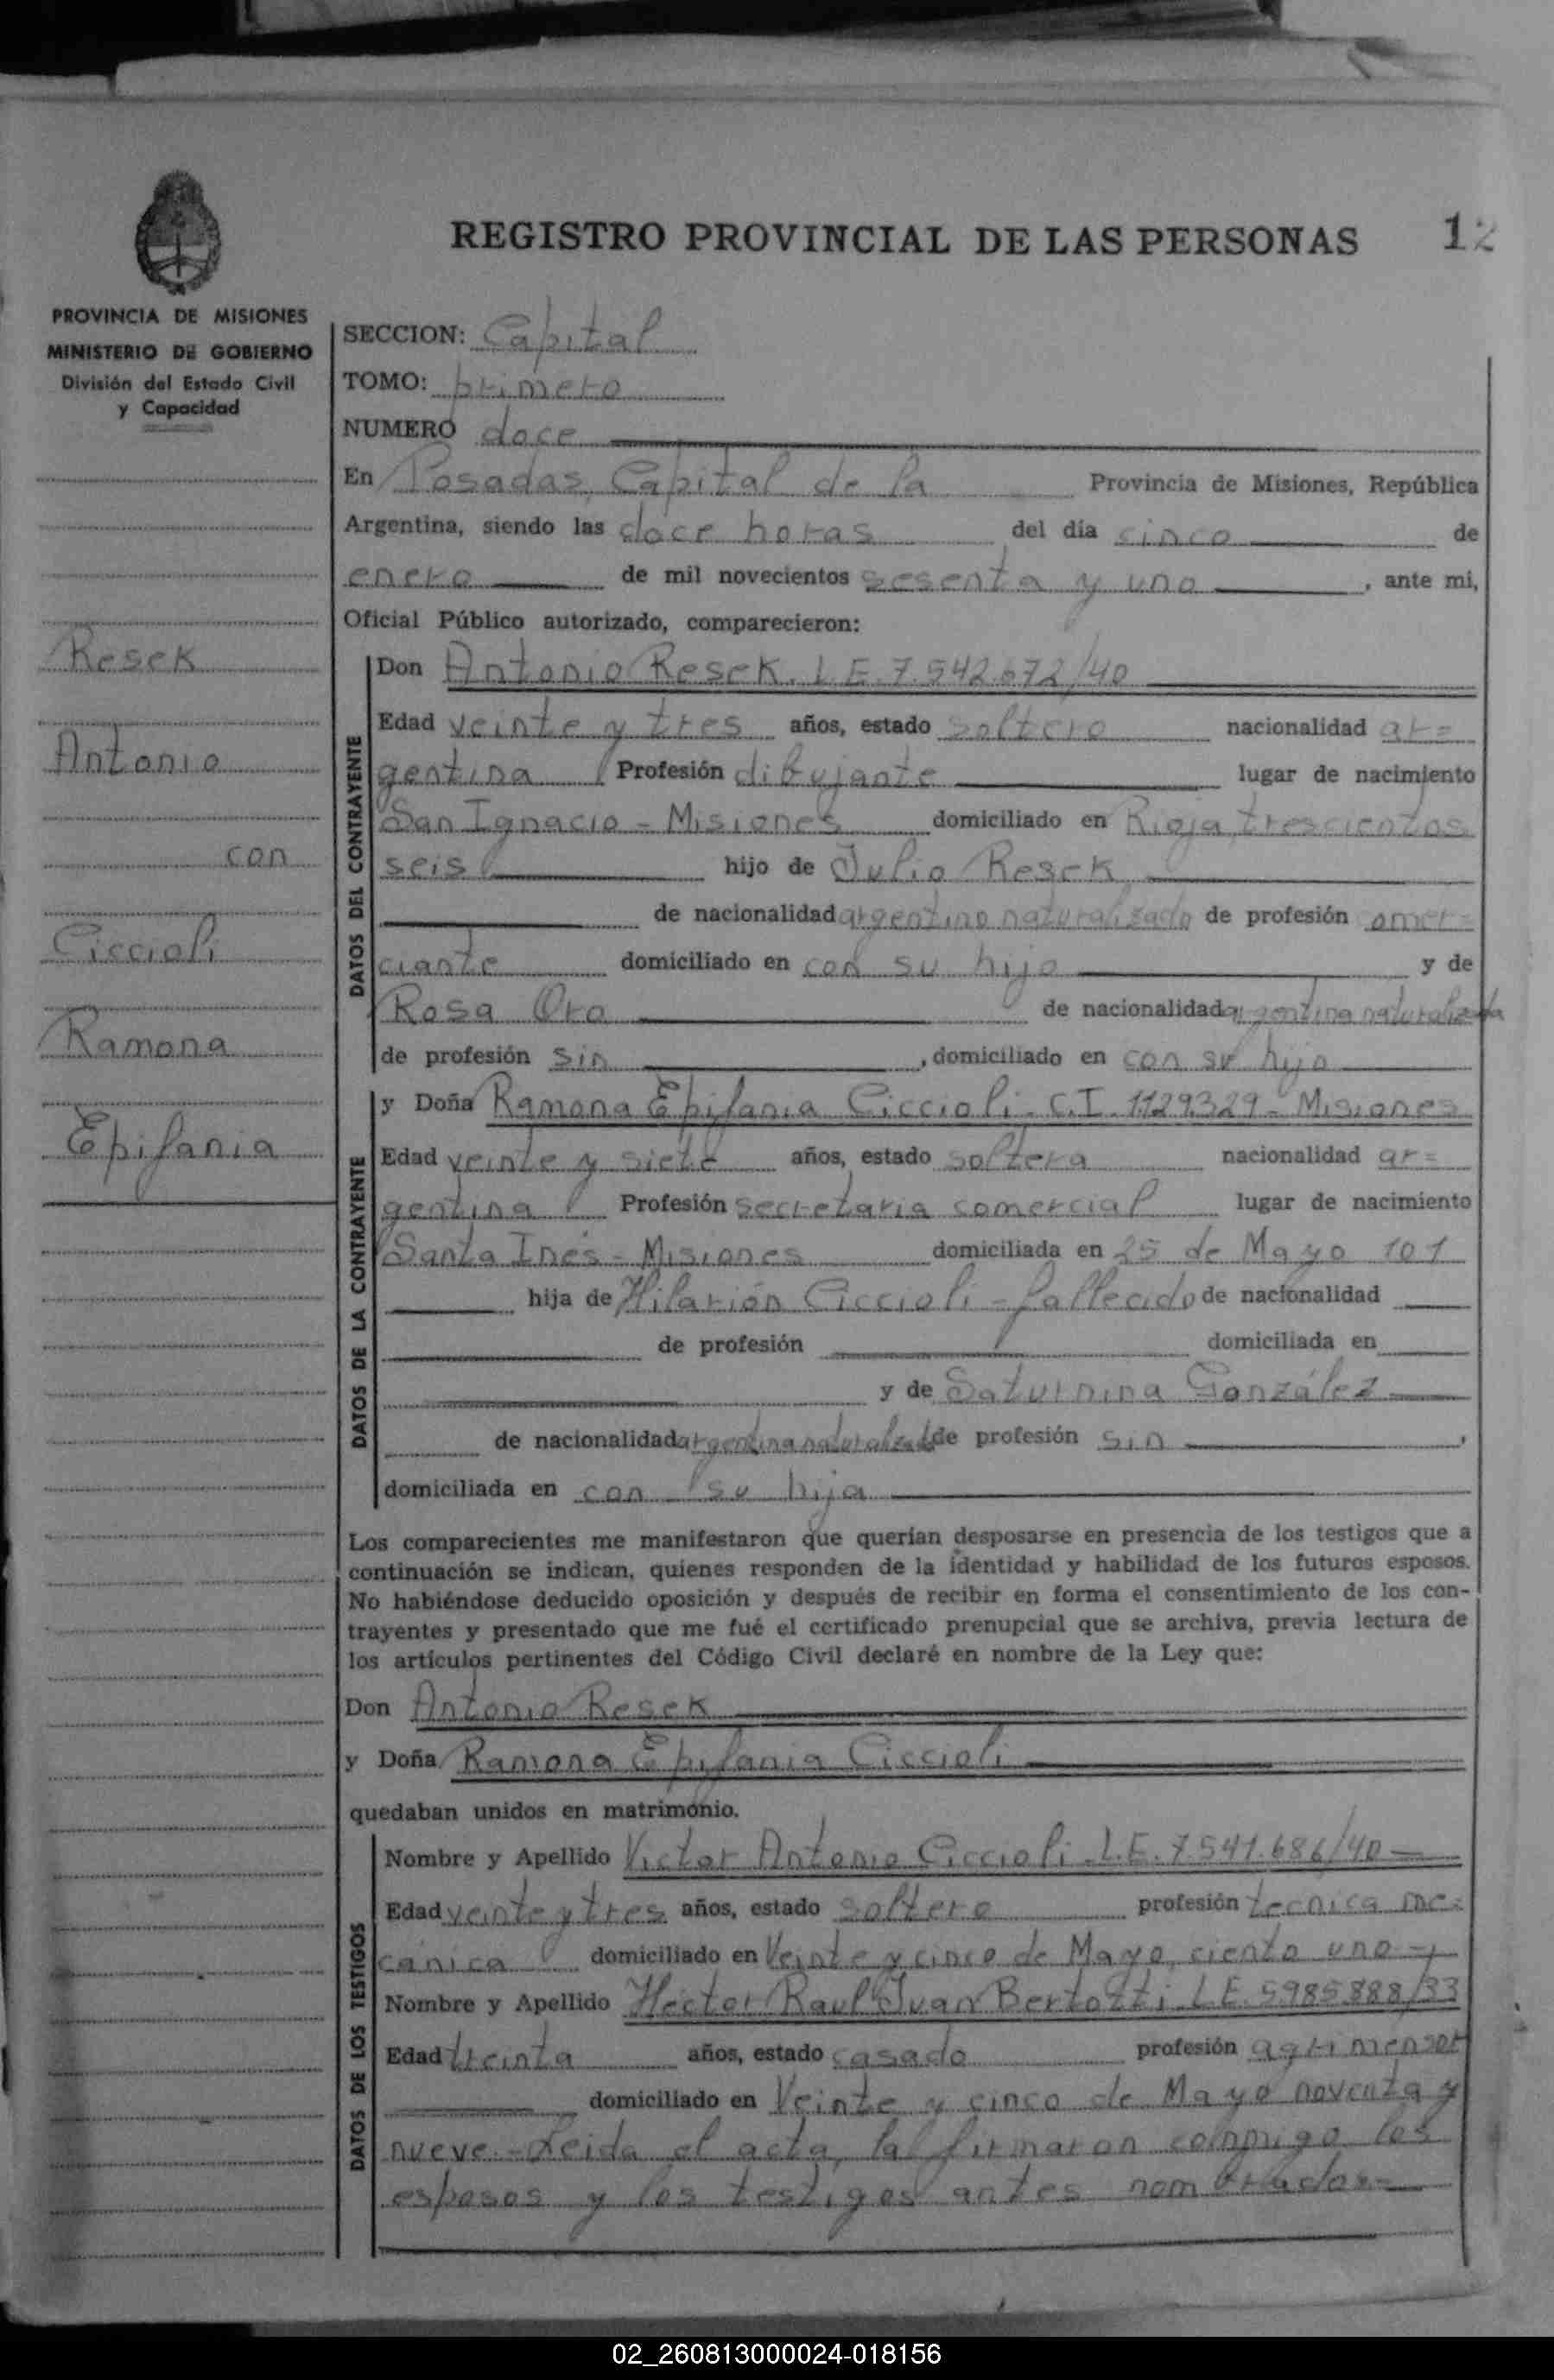 REGISTRO PROVINCIAL DE LAS PERSONAS 12
PROVINCIA DE MISIONES
MINISTERIO DE GOBIERNO
División del Estado Civil
y Capacidad
Resek
Antonio
con
Ciccioli
Ramona
Epifania
SECCION: Capital
TOMO: primero
NUMERO doce
En Posadas, Capital de la Provincia de Misiones, República
Argentina, siendo las doce horas del día cinco de
enero de mil novecientos sesenta y uno, ante mi,
Oficial Público autorizado, comparecieron:
DATOS DEL CONTRAYENTE
Don Antonio Resek. L.E. 7.542.672/40
Edad veinte y tres años, estado soltero nacionalidad ar=
gentina Profesión dibujante lugar de nacimiento
San Ignacio - Misiones domiciliado en Rioja trescientos
seis hijo de Julio Resek
de nacionalidad argentino naturalizado de profesión comer=
ciante domiciliado en con su hijo y de
Rosa Oro de nacionalidad argentina naturalizada
de profesión sin, domiciliado en con su hijo
DATOS DE LA CONTRAYENTE
y Doña Ramona Epifania Ciccioli - C.I. 1129329 - Misiones
Edad veinte y siete años, estado soltera nacionalidad ar=
gentina Profesión secretaria comercial lugar de nacimiento
Santa Inés - Misiones domiciliada en 25 de Mayo 101
hija de Hilarión Ciccioli - fallecido de nacionalidad
de profesión domiciliada en
y de Saturnina González
de nacionalidad argentina naturalizada de profesión sin,
domiciliada en con su hija
Los comparecientes me manifestaron que querían desposarse en presencia de los testigos que a
continuación se indican, quienes responden de la identidad y habilidad de los futuros esposos.
No habiéndose deducido oposición y después de recibir en forma el consentimiento de los con-
trayentes y presentado que me fué el certificado prenupcial que se archiva, previa lectura de
los artículos pertinentes del Código Civil declaré en nombre de la Ley que:
Don Antonio Resek
y Doña Ramona Epifania Ciccioli
quedaban unidos en matrimonio.
DATOS DE LOS TESTIGOS
Nombre y Apellido Victor Antonio Ciccioli - L.E. 7.541.686/40
Edad veinte y tres años, estado soltero profesión tecnica me=
cánica domiciliado en Veinte y cinco de Mayo, ciento uno
Nombre y Apellido Hector Raul Juan Bertotti - L.E. 5985888/33
Edad treinta años, estado casado profesión agrimensor
domiciliado en Veinte y cinco de Mayo noventa y
nueve - Leida el acta, la firmaron conmigo los
esposos y los testigos antes nombrados=
02_260813000024-018156